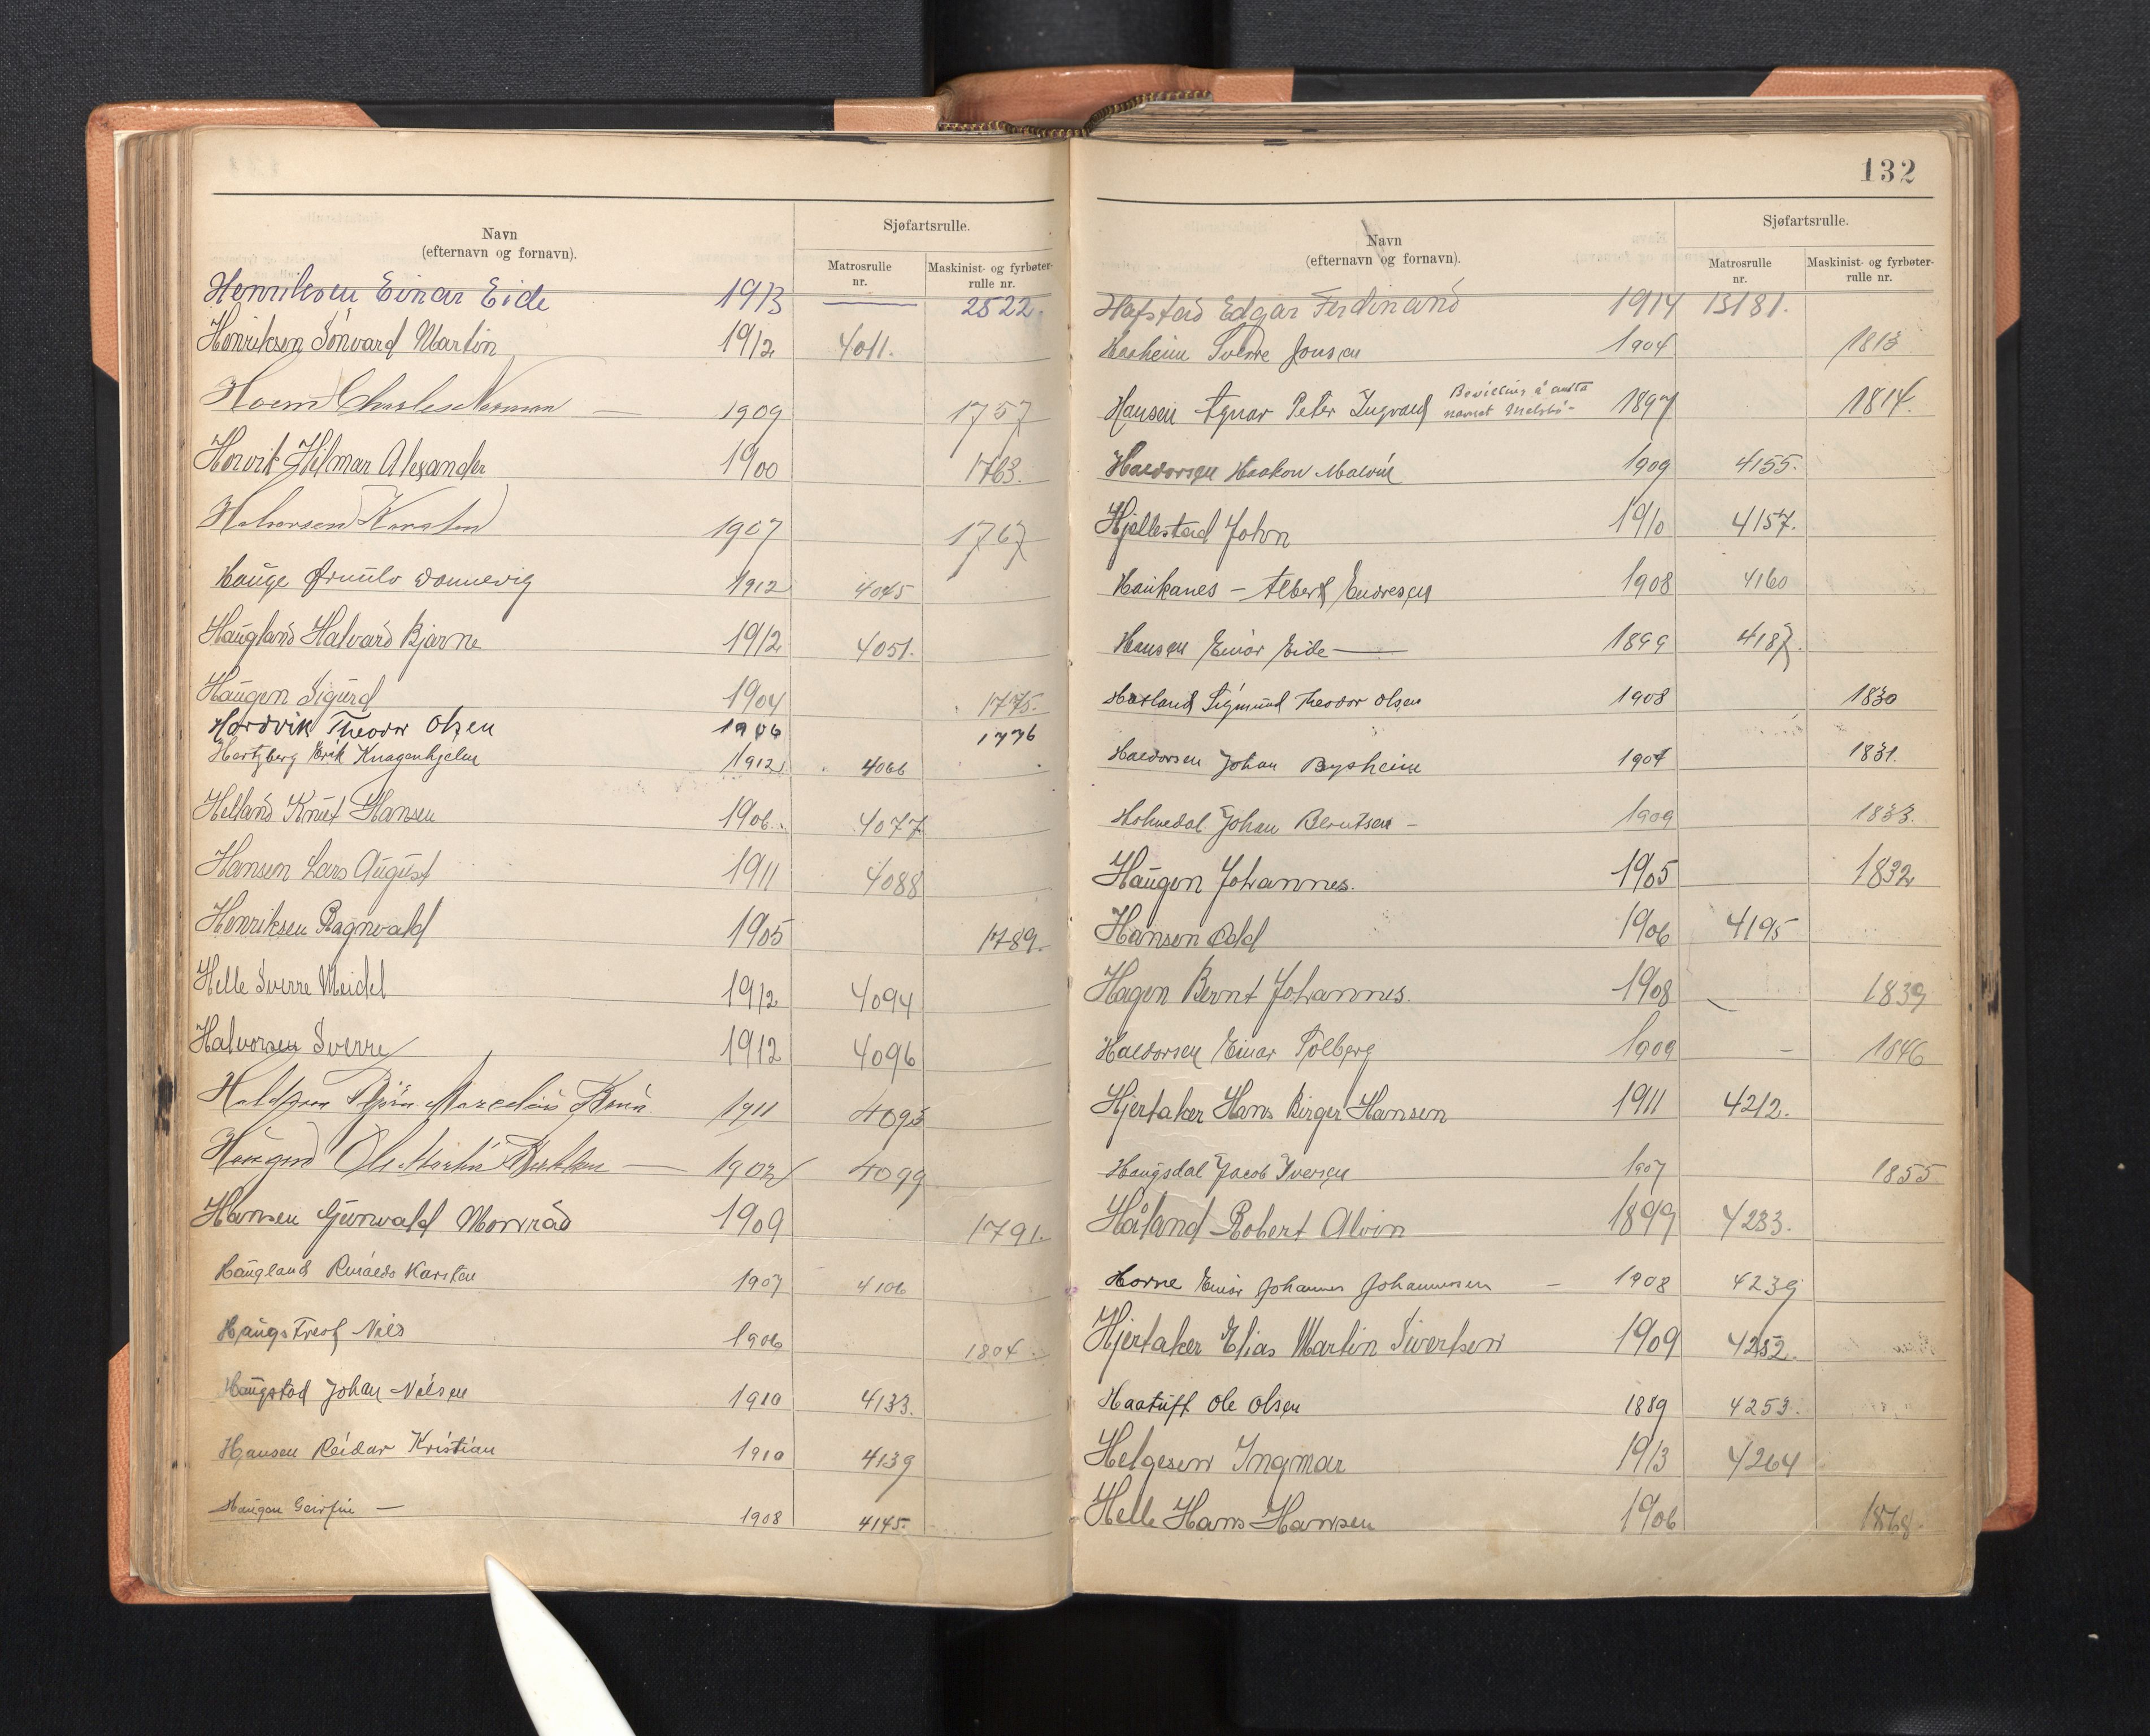 Navn
(efternavn og fornavn).
Sjøfartsrulle.
Matrosrulle
nr.
Maskinist- og fyrbøter-
rulle nr.
Henriksen Einar Eide 1913 — 2522.
Henriksen Sønvard Martin 1912 4011.
Hoem Charles Norman — 1909 1757
Horvik Hilmar Alexander 1900 1763.
Halvorsen Karsten 1907 1767
Hauge Ørnulv Dannevig 1912 4045
Haugland Halvard Bjarne 1912 4051.
Haugen Sigurd 1904 1775.
Hordvik Theodor Olsen 1906 1776
Hertzberg Erik Knagenhjelm 1912 4066
Helland Knut Hansen 1906. 4077
Hansen Lars August 1911 4088
Henriksen Ragnvald 1905 1789.
Helle Sverre Meidel 1912 4094
Halvorsen Sverre 1912 4096
Bjørn Marcelius 1911 4093
Haugen Ole Martin — 1902 4099
Hansen Gunvald Monrad 1909 1791.
Haugland Karsten 1907 4106
Nils 1906 1804.
Haugstad Johan Nilsen 1910 4133.
Hansen Reidar Kristian 1910 4139
Haugen Geirfin — 1908 4145.
132
Navn
(efternavn og fornavn).
Sjøfartsrulle.
Matrosrulle
nr.
Maskinist- og fyrbøter-
rulle nr.
Hafstad Edgar Ferdinand 1914 13181.
Haaheim Sverre Jonsen 1904 1813
Hansen Agnar Peter Ingvald Bevilling å anta
navnet 1897 1814.
Haldorsen Haakon Malvin 1909 4155.
Hjellestad John 1910 4157.
Haukanes – Albert Endresen 1908 4160
Hansen Einar Eide — 1899 4187.
Havland Sigmund Theodor Olsen 1908 1830
Haldorsen Johan Bysheim 1907 1831.
Holmedal Johan Berntsen – 1909 1833.
Haugen Johannes. 1905 1832
Hansen Odd 1906 4195
Hagen Bernt Johannes. 1908 1839
Haldorsen Einar Solberg 1909 – 1846
Hjertaker Hans Birger Hansen 1911 4212.
Haugsdal Jacob Iversen 1907 1855.
Håland Robert Alvin 1899 4233.
Horne Einar Johannes Johannesen – 1908 4239
Hjertaker Elias Martin Sivertsen 1909 4252.
Haatuft Ole Olsen 1889 4253.
Helgesen Ingmar 1913 4264
Helle Hans Hansen 1906 1868.